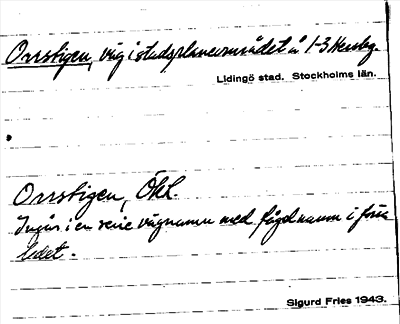 Orrstigen, väg i stadsplaneområdet å 1-3 Hersby.
Lidingö stad. Stockholms län.
Orrstigen, Ökk.
Ingår i en serie vägnamn med fågelnamn i förra
ledet.
Sigurd Fries 1943.